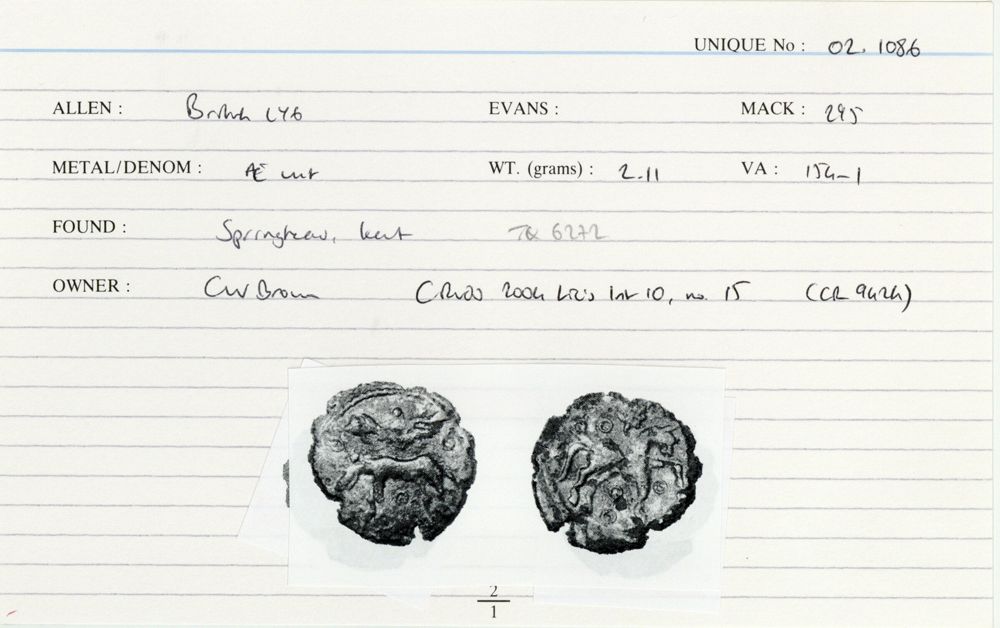 UNIQUE No : 02. 1086
ALLEN : British LY6 EVANS : MACK : 295
METAL/DENOM : Æ unit WT. (grams) : 2.11 VA : 154-1
FOUND : Springhead, Kent TQ 6272
OWNER : CW Brown 2004 10, no. 15 (CR 9424)
2
1